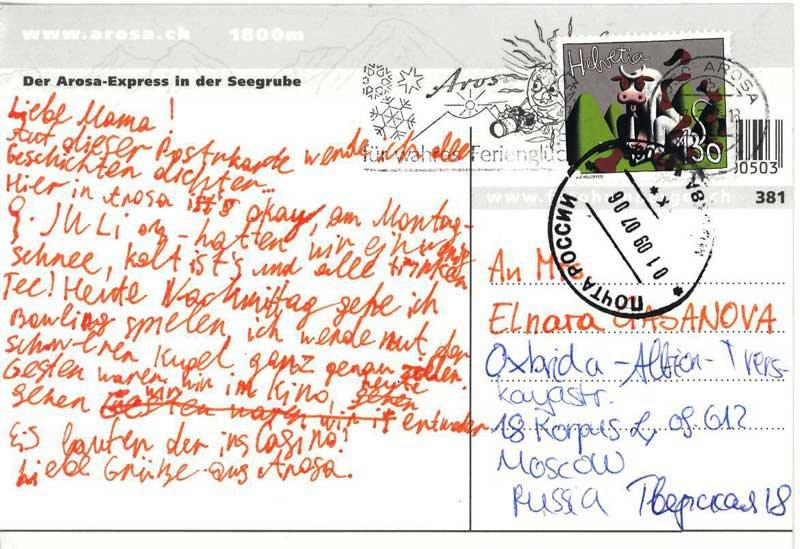 www.arosa.ch 1800m
Der Arosa-Express in der Seegrube
Liebe Mama!
Auf dieser Postkarte werde ich alle
Geschichten dichten...
Hier in Arosa ist's okay, am Montag-
9. JULi hatten wir
schnee, kalt ist's und alle trinken
Tee! Heute Nachmittag gehe ich
Bowling spielen ich werde mit der
schweren Kugel ganz genau zielen.
Gestern waren wir im Kino, heute
gehen entweder
Eis laufen oder ins Casino!
Liebe Grüße aus Arosa.
Arosa
für wahres Ferienglück
Helvetia
130
AROSA
00503
381
ПОЧТА РОССИИ
01 09 07 06
An
Elnara GASANOVA
Oxbrida-Albion-Tvers-
kayastr.
18 Korpus 2, of 612
Moscow
Russia Тверская 18